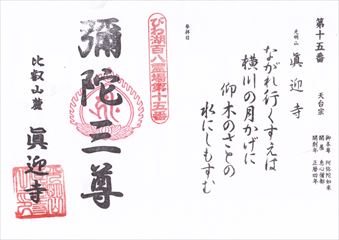 第十五番
天台宗
光明山 眞迎寺
御本尊 阿弥陀如来
開基 恵心僧都
開創年 正暦四年
参拝日
ながれ行くすえは
横川の月かげに
仰木のさとの
水にしもすむ
びわ湖百八霊場第十五番
彌陀三尊
比叡山麓
眞迎寺